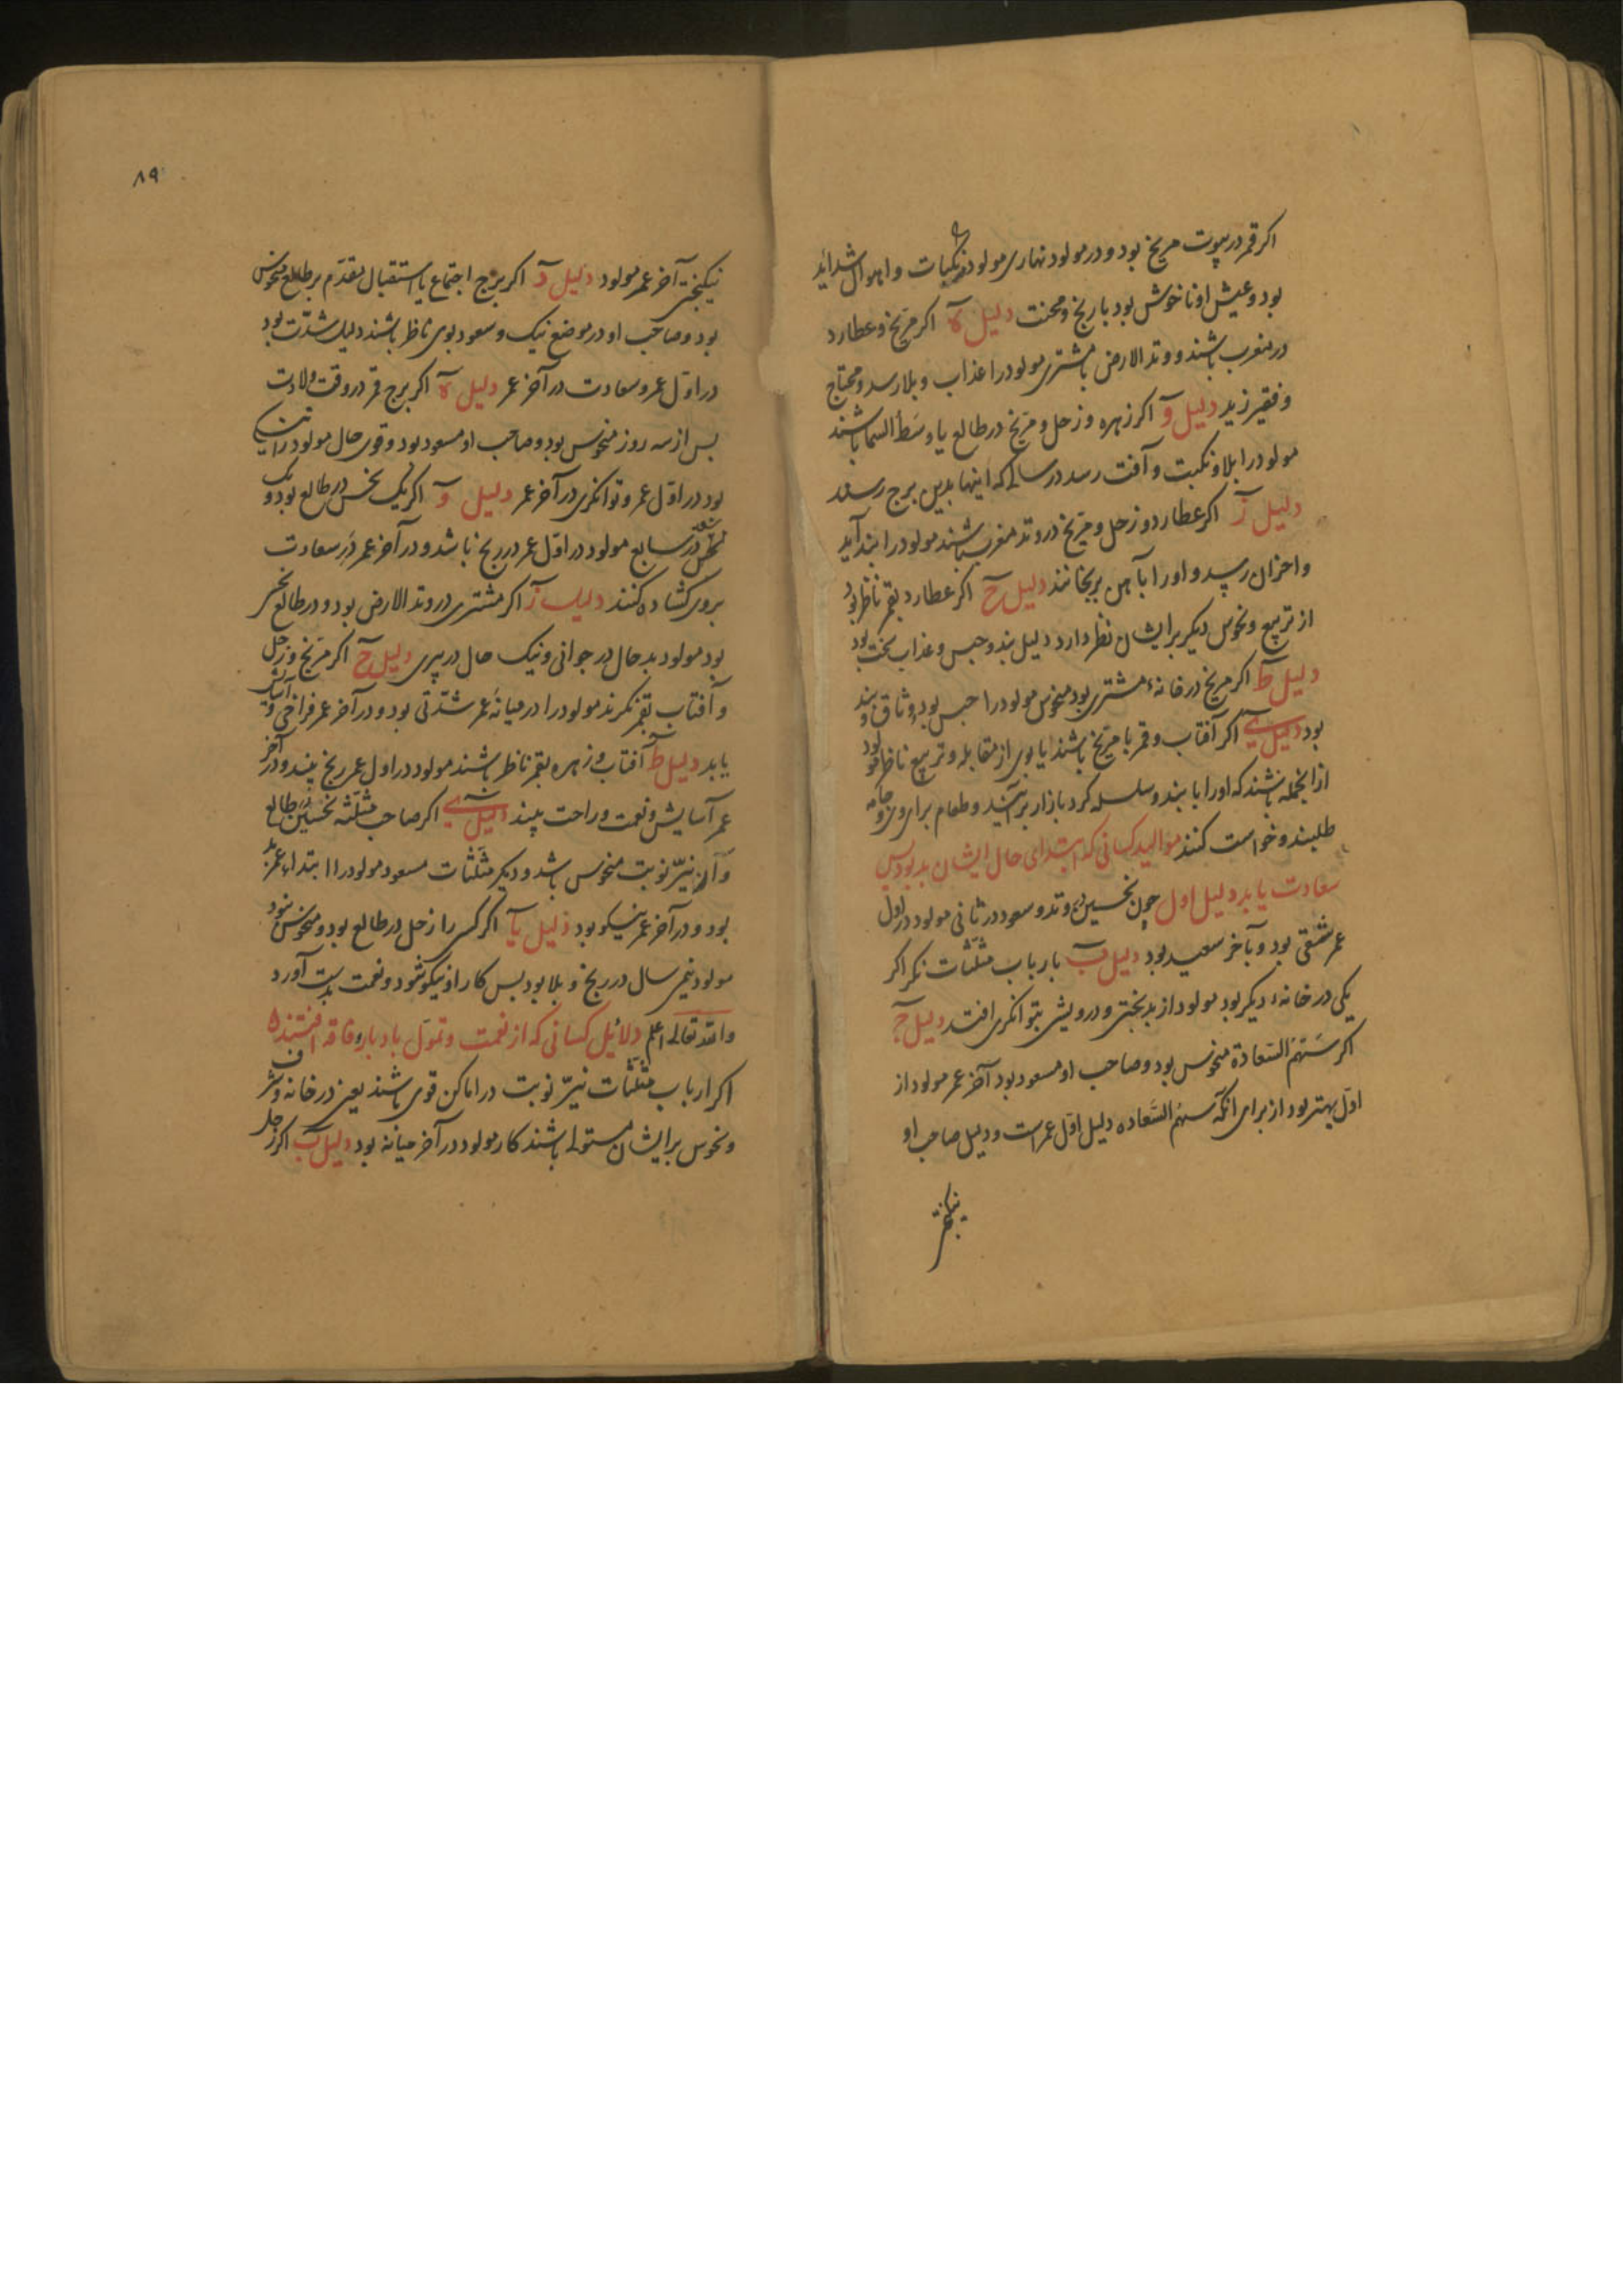 اکر قمر در بیوت مریخ بود و در مولود نهاری مولود در نکبات و اهوال شداید
بود و عیش او ناخوش بود با رنج و محنت دلیل ه اکر مریخ و عطارد
در مغرب باشند و وتد الارض با مشتری مولود را عذاب و بلا رسد و محتاج
و فقیر زید دلیل و اکر زهره و زحل و مریخ در طالع یا وسط السما باشند
مولود را بلا و نکبت و آفت رسد در سالی که اینها بدین برج رسند
دلیل ز اکر عطارد و زحل و مریخ در وتد مغرب باشند مولود را بند آید
و احزان رسد و او را بآهن برنجانند دلیل ح اکر عطارد بقمر ناظر بود
از تربیع و نحوس دیکر برایشان نظر دارد دلیل بند و حبس و عذاب سخت بود
دلیل ط اکر مریخ در خانهٔ مشتری بود منحوس مولود را حبس بود و وثاق و بند
بود دلیل ی اکر آفتاب و قمر با مریخ باشند یا بوی از مقابله و تربیع ناظر مولود
از انجمله باشند که او را با بند و سلسله کرد بازار برآرند و طعام برای وی و جامه
طلبند و خواست کنند موالید کسانی که ابتدای حال ایشان بد بود پس
سعادت یابد دلیل اول چون نحسین در وتد و سعود در ثانی مولود در اول
عمر شقی بود و بآخر سعید بود دلیل ب بارباب مثلثات نکر اکر
یکی در خانهٔ دیکر بود مولود از بدبختی و درویشی بتوانکری افتد دلیل ج
اکر سهم السعادة منحوس بود و صاحب او مسعود بود آخر عمر مولود از
اول بهتر بود از برای آنکه سهم السعاده دلیل اول عمر است و دلیل صاحب او
نیکبختی
۸۹
نیکبختی آخر عمر مولود دلیل د اکر برج اجتماع یا استقبال مقدم بر طالع منحوس
بود و صاحب او در موضع نیک و سعود بوی ناظر باشند دلیل شدت بود
در اول عمر و سعادت در آخر عمر دلیل ه اکر برج قمر در وقت ولادت
پس از سه روز منحوس بود و صاحب او مسعود بود و قوی حال مولود را تنکی
بود در اول عمر و توانکری در آخر عمر دلیل و اکر یک نحس در طالع بود و یک
نحس در سابع مولود در اول عمر در رنج باشد و در آخر عمر در سعادت
بروی کشاده کنند دلیل ز اکر مشتری در وتد الارض بود و در طالع نحس
بود مولود بد حال در جوانی و نیک حال در پیری دلیل ح اکر مریخ و زحل
و آفتاب بقمر نکرند مولود را در میانهٔ عمر شدتی بود و در آخر عمر فراخی و آسایش
یابد دلیل ط آفتاب و زهره بقمر ناظر باشند مولود در اول عمر رنج بیند و در آخر
عمر آسایش و نعمت و راحت بیند دلیل ی اکر صاحب مثلثه نخستین طالع
و آن نیر نوبت منحوس باشد و دیکر مثلثات مسعود مولود را ابتداء عمر بد
بود و در آخر عمر نیکو بود دلیل یا اکر کسی را زحل در طالع بود و منحوس شود
مولود نیمی سال در رنج و بلا بود پس کار او نیکو شود و نعمت بدست آورد
والله تعالی اعلم دلائل کسانی که از نعمت و تمول بادبار و فاقه افتند ه
اکر ارباب مثلثات نیر نوبت در اماکن قوی باشند یعنی در خانه و شرف
و نحوس برایشان مستولی باشند کار مولود در آخر میانه بود دلیل ب اکر زحل